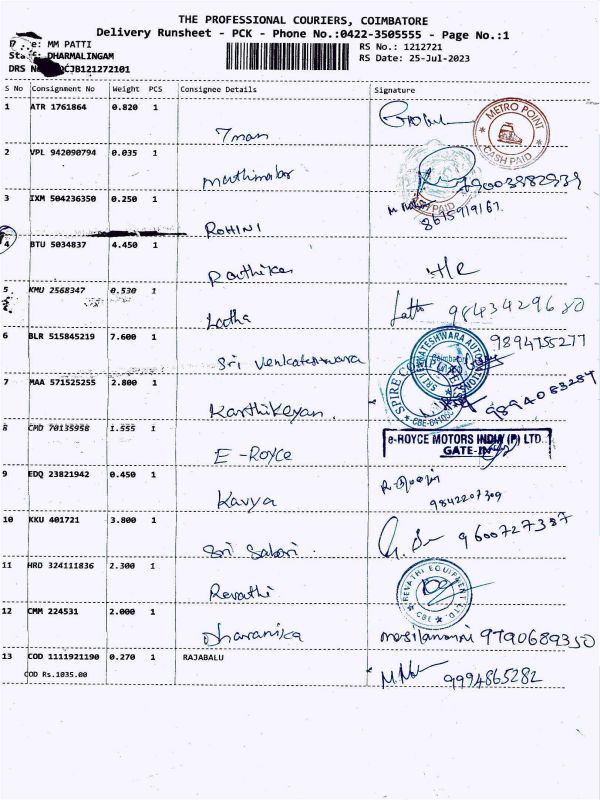 THE PROFESSIONAL COURIERS, COIMBATORE
Delivery Runsheet - PCK - Phone No.:0422-3505555 - Page No.:1
MM PATTI
RS No.: 1212721
DHARMALINGAM
RS Date: 25-Jul-2023
DRS
S No Consignment No Weight PCS Consignee Details Signature
1 ATR 1761864 0.820 1
7man
METRO POINT
CASH PAID
2 VPL 942090794 0.035 1
PAID
3 IXM 504236350 0.250 1
8675919167.
ROHINI
4 BTU 5034837 4.450 1
Radhika H/R
5 KMU 2568347 0.530 1
Latha 9843429680
6 BLR 515845219 7.600 1
9894755277
Sri Venkateshwara
7 MAA 571525255 2.800 1
Karthikeyan. 9894083284
8 CMD 70135958 1.555 1
e-ROYCE MOTORS INDIA (P) LTD.
GATE-IN
E-ROYCE
9 EDQ 23821942 0.450 1
Kavya 9842207309
10 KKU 401721 3.800 1
9600727387
Sri Sabari.
11 HRD 324111836 2.300 1
REVATHI EQUIPMENT LTD.
CBE
Revathi
12 CMM 224531 2.000 1
Dharanika 9790689350
13 COD 1111921190 0.270 1 RAJABALU
COD Rs.1035.00
9994865282